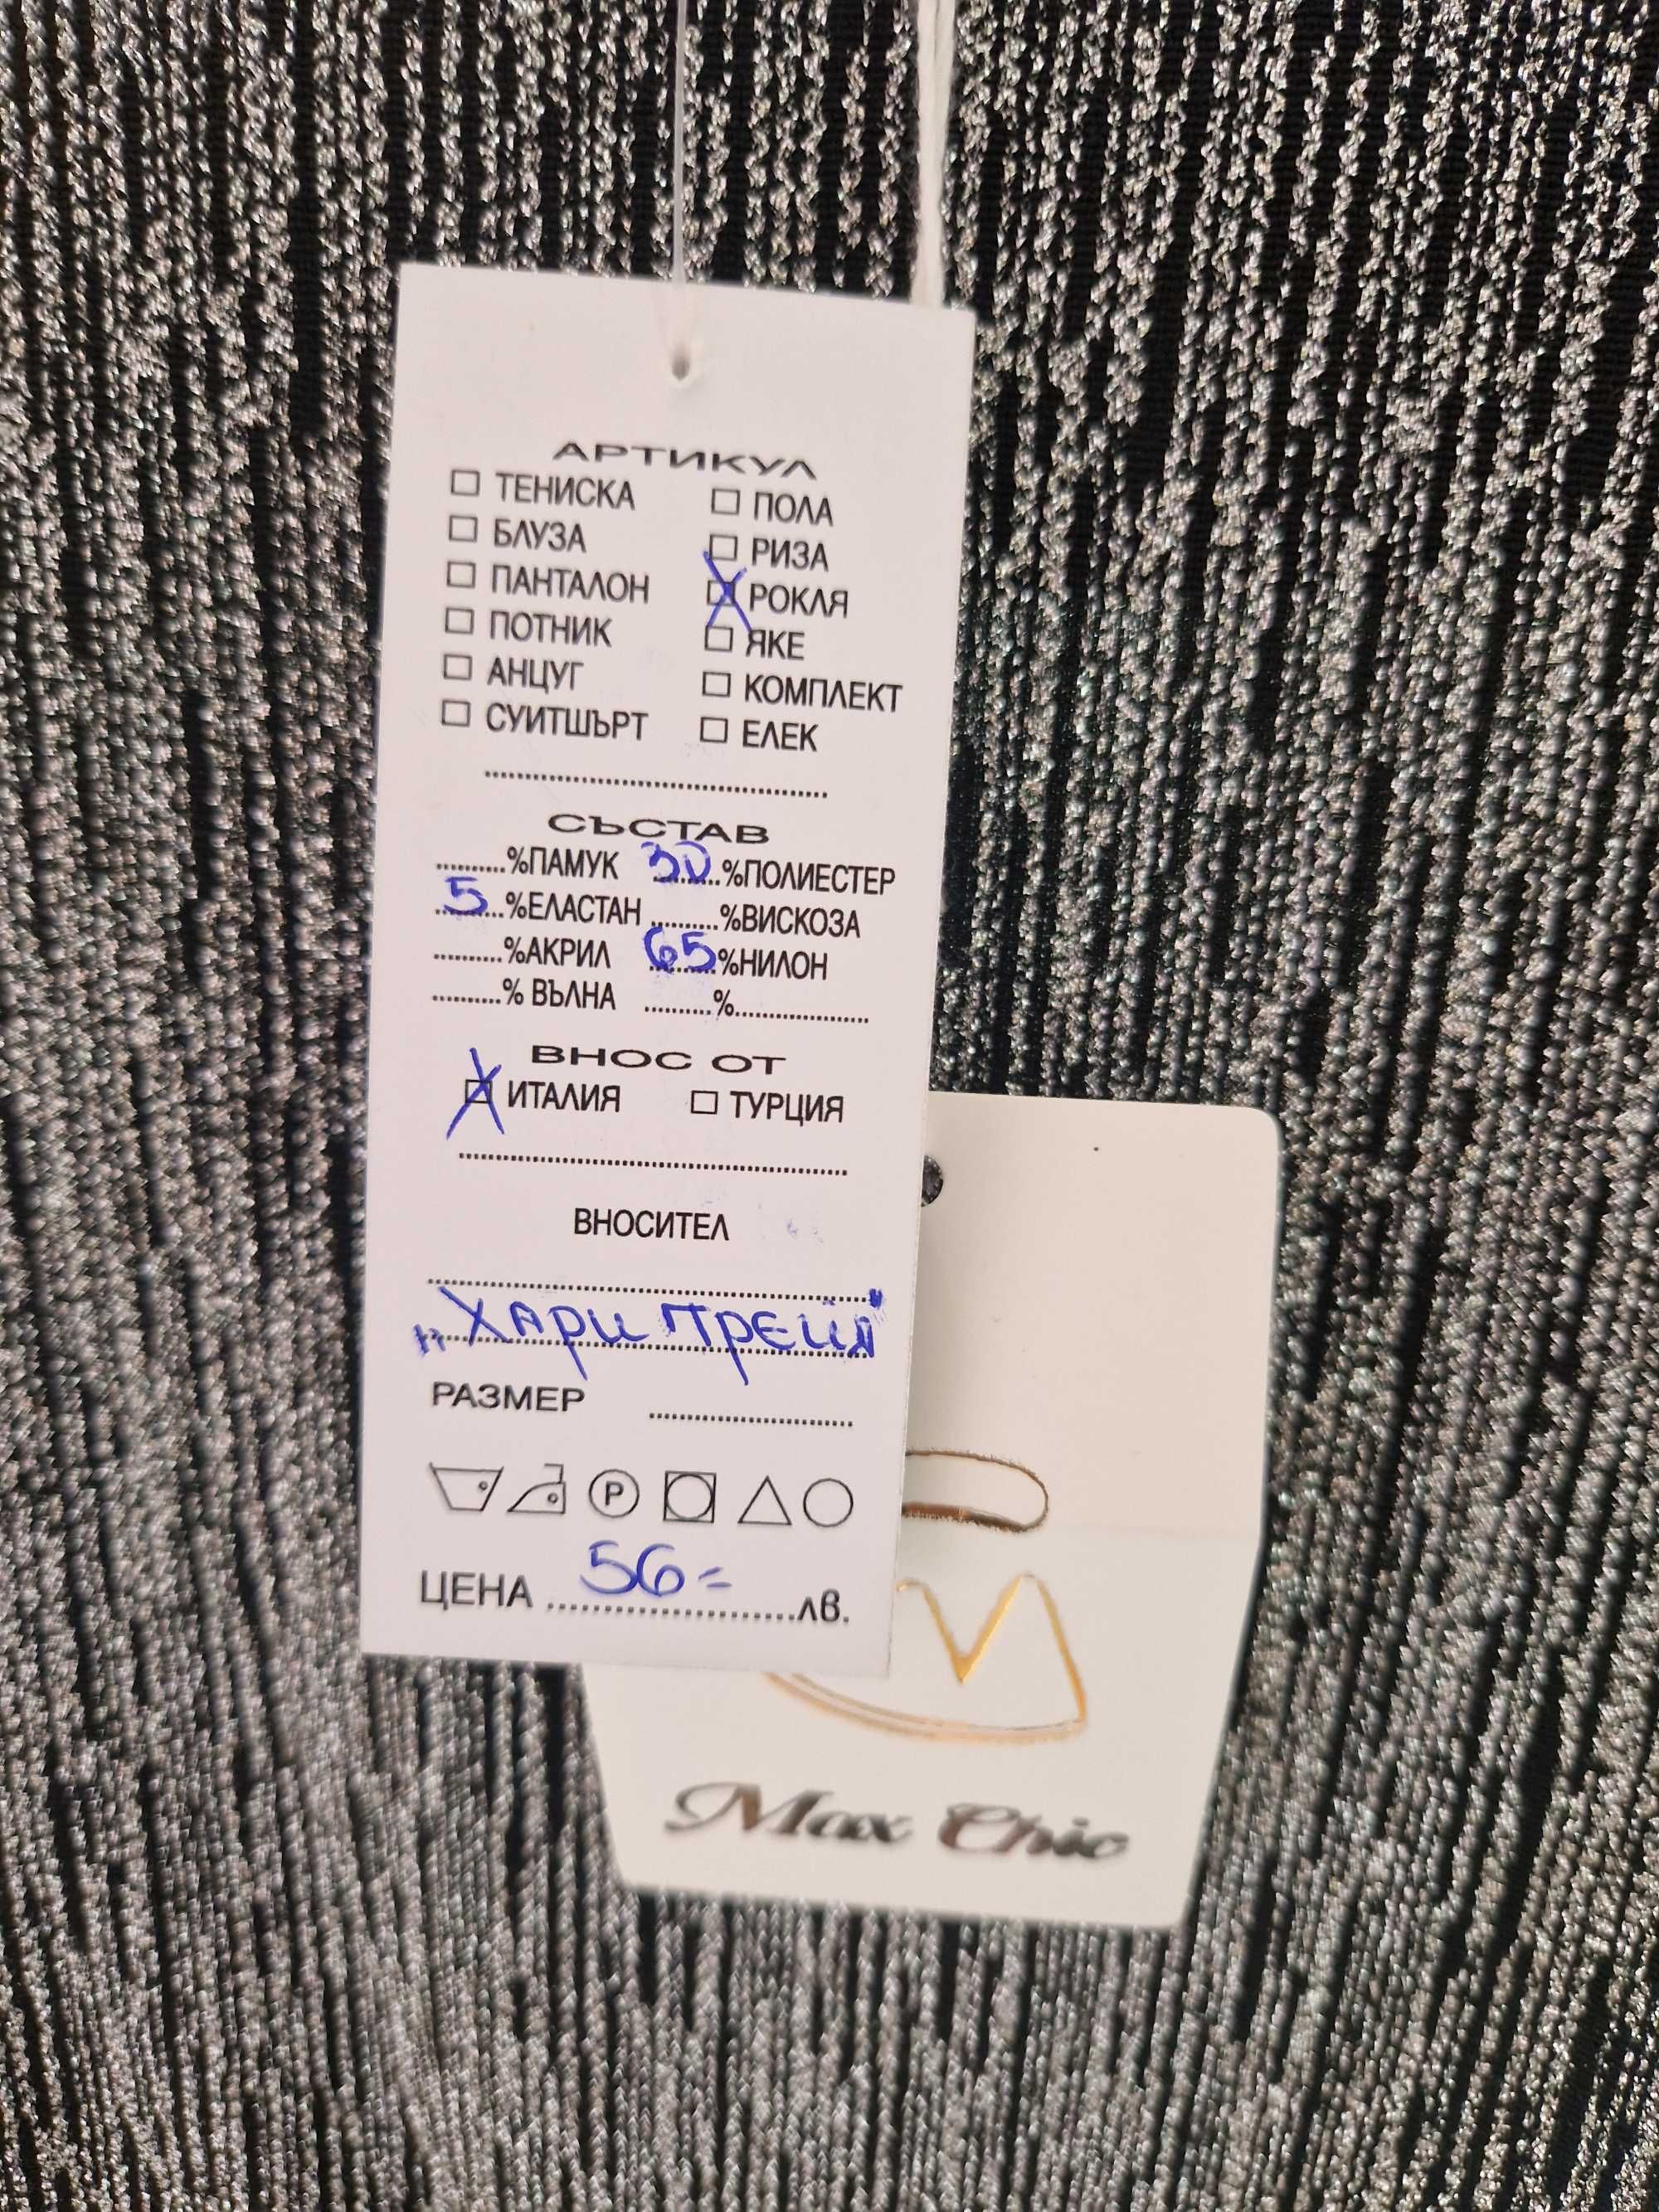 АРТИКУЛ
☐ ТЕНИСКА ☐ ПОЛА
☐ БЛУЗА ☐ РИЗА
☐ ПАНТАЛОН ☒ РОКЛЯ
☐ ПОТНИК ☐ ЯКЕ
☐ АНЦУГ ☐ КОМПЛЕКТ
☐ СУИТШЪРТ ☐ ЕЛЕК
СЪСТАВ
..........%ПАМУК 30 %ПОЛИЕСТЕР
5 %ЕЛАСТАН ..........%ВИСКОЗА
..........%АКРИЛ 65 %НИЛОН
..........% ВЪЛНА ..........%....................
ВНОС ОТ
☒ ИТАЛИЯ ☐ ТУРЦИЯ
ВНОСИТЕЛ
„Хари Трейд"
РАЗМЕР ..............................
P
ЦЕНА 56= лв.
Max Chic